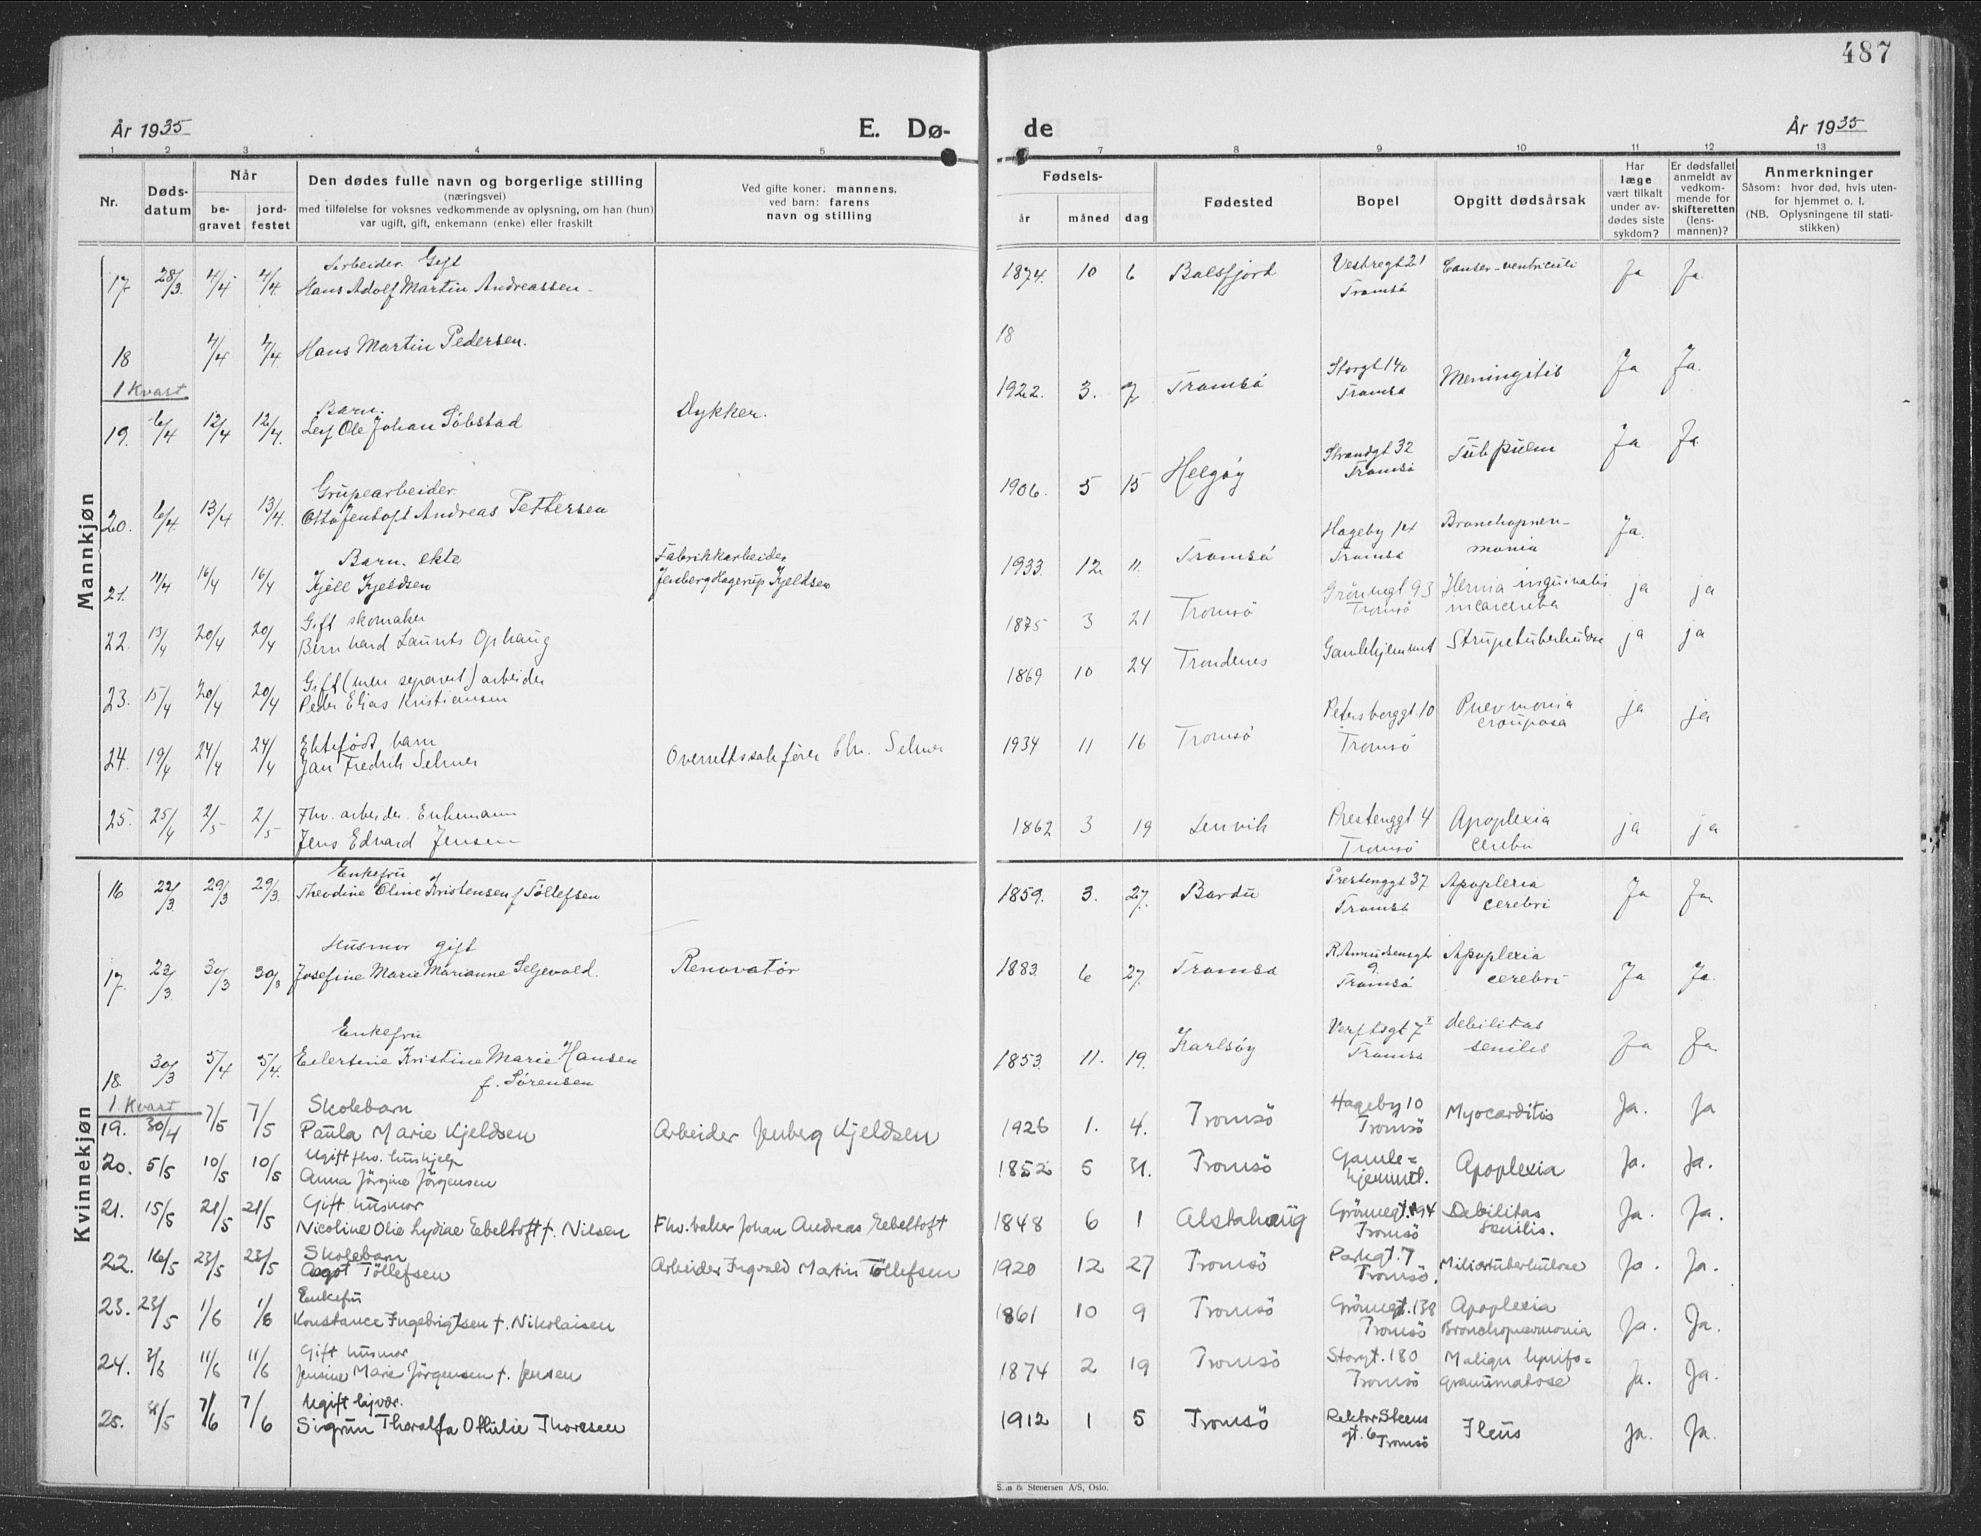 487
År 1935 E. Dø- de År 1935
1 2 3 4 5 7 8 9 10 11 12 13
Nr. Døds-datum Når be-gravet jord-festet
Den dødes fulle navn og borgerlige stilling
(næringsvei)
med tilføielse for voksnes vedkommende av oplysning, om han (hun)
var ugift, gift, enkemann (enke) eller fraskilt
Ved gifte koner: mannens,
ved barn: farens
navn og stilling
Fødsels-
år måned dag
Fødested Bopel Opgitt dødsårsak
Har læge vært tilkalt under av-dødes siste sykdom?
Er dødsfallet anmeldt av vedkom-mende for skifteretten (lens-mannen)?
Anmerkninger
Såsom: hvor død, hvis uten-
for hjemmet o. l.
(NB. Oplysningene til stati-
stikken)
Mannkjøn
Arbeider Gift Vestregt 21
17 28/3 4/4 4/4 Hans Adolf Martin Andreassen 1874. 10 6 Balsfjord Tromsö Cancer-ventriculi Ja Ja.
18 4/4 4/4 Hans Martin Pedersen. 18
1 Kvart
Barn. Storgt 140
19. 6/4 12/4 12/4. Leif Ole Johan Söbstad Dykker. 1922. 3. 7 Tromsö Tromsö Meningitis Ja Ja.
Grupearbeider Strandgt 32
20. 6/4 13/4 13/4. Otto Jentoft Andreas Pettersen 1906. 5 15 Helgöy Tromsö Tub pulm Ja Ja
Barn. ekte Fabrikkarbeider Hageby 14 Bronchopneu-
21. 11/4 16/4 16/4 Kjell Kjeldsen Jenberg Hagerup Kjeldsen 1933. 12 11. Tromsö Tromsö monia Ja.
Gift skomaker Grönnegt 93 Hernia inguinalis
22. 13/4 20/4 20/4 Bernhard Laurits Ophaug 1875 3 21 Tromsö Tromsö incarcerata ja ja
Gift (men separert) arbeider
23. 15/4 20/4 20/4 Peder Elias Kristiansen 1869 10 24 Trondenes Gamlehjemmet Strupetuberkulose ja ja
Ektefødt barn Petersborggt. 10 Pnevmonia
24. 19/4 24/4 24/4 Jan Fredrik Selmer Overrettssakfører Chr. Selmer 1934 11 16 Tromsö Tromsö crouposa ja ja
Fhv. arbeider. Enkemann Prestenggt. 4 Apoplexia
25. 25/4 2/5 2/5 Jens Edvard Jensen 1862 3 19 Lenvik Tromsö cerebri ja ja
Kvinnekjøn
Enkefru Prestenggt 37 Apoplexia
16 22/3 29/3 29/3. Theodine Oline Kristensen f Töllefsen 1859. 3. 27. Bardu Tromsö cerebri Ja Ja.
Husmor gift R. Amundsensgt Apoplexia
17. 23/3. 30/3 30/3 Josefine Marie Marianne Seljevold. Renovatör 1883. 6 27. Tromsö 9. Tromsö cerebri Ja Ja.
Enkefru Verftsgt 7 I debilitas
18. 30/3 5/4 5/4. Eilertine Kristine Marie Hansen 1853. 11. 19. Karlsöy Tromsö senilis Ja Ja.
f. Sörensen
1. Kvart
Skolebarn Hageby 10
19. 30/4 7/5 7/5 Paula Marie Kjeldsen Arbeider Jenberg Kjeldsen 1926 1. 4. Tromsö Tromsö Myocarditis Ja. Ja
Ugift fhv. hushjelp Gamle=
20. 5/5 10/5 10/5 Anna Jörgine Jörgensen 1852 5 31. Tromsö hjemmet. Apoplexia Ja. Ja.
Gift husmor Grönnegt. 94 Debilitas
21. 15/5 21/5 21/5 Nicoline Olie Lydiae Eebeltoft f. Nilsen Fhv. baker Johan Andreas Eebeltoft 1848 6 1 Alstahaug Tromsö senilis. Ja. Ja.
Skolebarn Parkgt. 7
22. 16/5 23/5 23/5 Aagot Töllefsen Arbeider Ingvald Martin Töllefsen 1920 12 27 Tromsö Tromsö. Miliærtuberkulose Ja. Ja.
Enkefru Grönnegt. 138 Apoplexia
23. 23/5 1/6 1/6 Konstance Ingebrigtsen f. Nikolaisen 1861 10 9 Tromsö Tromsö Bronchopnevmonia Ja. Ja.
Gift husmor Storgt. 180 Malign lymfo=
24. 3/6 11/6 11/6 Jensine Marie Jörgensen f. Jensen 1874 2 19 Tromsö Tromsö granumatose Ja. Ja.
Ugift hjvær. Rektor Steens
25. 31/5 7/6 7/6 Sigrun Thoralfa Othilie Thoresen 1912 1 5 Tromsö gt. 6 Tromsö Ileus Ja. Ja.
& Stenersen A/S, Oslo.